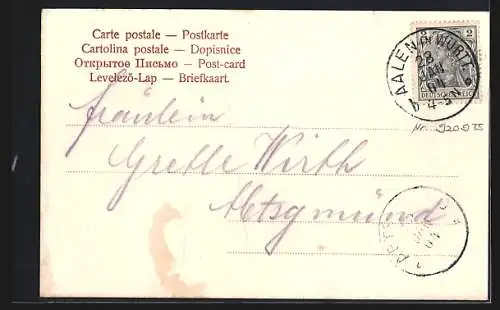 Carte postale — Postkarte
Cartolina postale — Dopisnice
Открытое Письмо — Post-card
Levelező-Lap — Briefkaart.
AALEN (WÜRTT.)
23
JAN
04
2
DEUTSCHES REICH
Fräulein
Gretle Wirth
Abtsgmünd